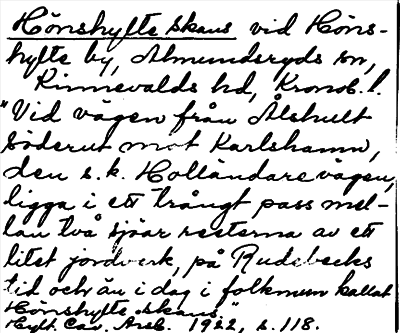 Hönshyfte skans vid Höns-
hylte by, Almundsryds sn,
Kinnevalds hd, Kronob. l.
"Vid vägen från Älshult
söderut mot Karlshamn,
den s.k. Holländarevägen,
ligga i ett trångt pass mel-
lan två sjöar resterna av ett
litet jordverk, på Rudebecks
tid och än i dag i folkmun kallat
Hönshylte skans."
Hylt. Cav. Årsb. 1922, s. 118.